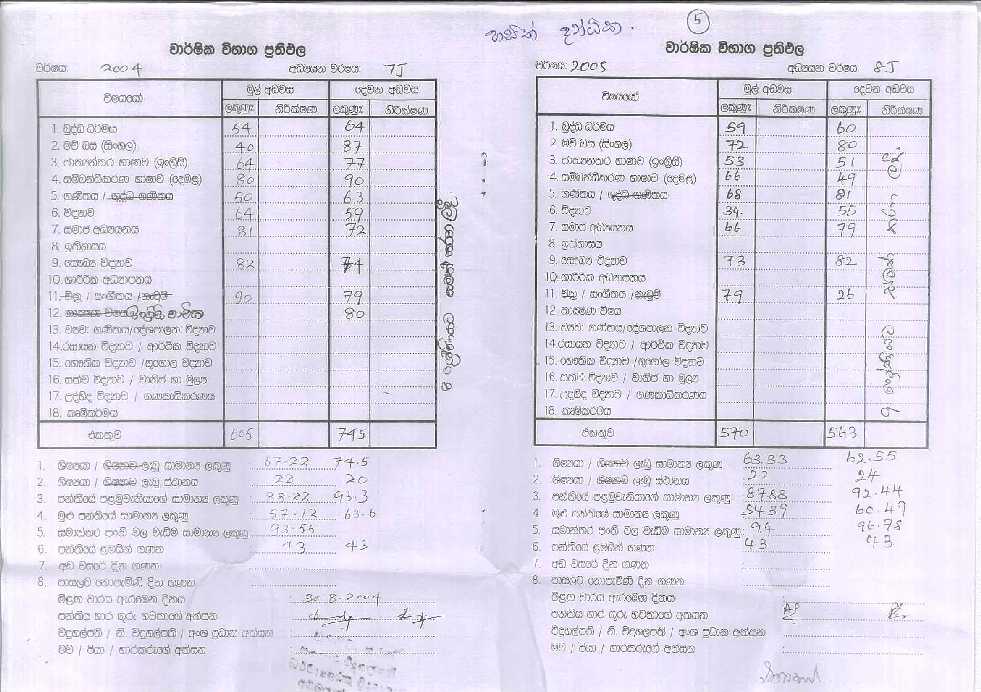 5
හසිත් දනිධික.
වාර්ෂික විභාග ප්‍රතිඵල
වර්ෂය: 2004 අධ්‍යයන වර්ෂය: 7J
විෂයයෝ මුල් අඩවස දෙවන අඩවස
ලකුණු නිරීක්ෂණ ලකුණු නිරීක්ෂණ
1. බුද්ධ ධර්මය 54 64
2. මව් බස (සිංහල) 40 87
3. ජාත්‍යන්තර භාෂාව (ඉංග්‍රීසි) 64 77
4. සම්බන්ධීකරණ භාෂාව (දෙමළ) 80 90
5. ගණිතය / ශුද්ධ ගණිතය 50 63
6. විද්‍යාව 64 59
7. සමාජ අධ්‍යයනය 81 72
8. ඉතිහාසය
9. සෞඛ්‍ය විද්‍යාව 82 74
10. ශාරීරික අධ්‍යාපනය
11. චිත්‍ර / සංගීතය / නැටුම් 90 79
12. 80
13. ව්‍යව: ගණිතය/දේශපාලන විද්‍යාව
14. රසායන විද්‍යාව / ආර්ථික විද්‍යාව
15. භෞතික විද්‍යාව / භූගෝල විද්‍යාව
16. සත්ව විද්‍යාව / වාණිජ හා මූල්‍ය
17. උද්භිද විද්‍යාව / ගණකාධිකරණය
18. කෘෂිකර්මය
එකතුව 605 745
1. ශිෂ්‍යයා / ශිෂ්‍යාව ලැබූ සාමාන්‍ය ලකුණු 67.22 74.5
2. ශිෂ්‍යයා / ශිෂ්‍යාව ලැබූ ස්ථානය 22 20
3. පන්තියේ පළමුවැනියාගේ සාමාන්‍ය ලකුණු 93.3
4. මුළු පන්තියේ සාමාන්‍ය ලකුණු 57.12 63.6
5. සමාන්තර පංති වල වැඩිම සාමාන්‍ය ලකුණු 93.56
6. පන්තියේ ළමයින් ගණන 43 43
7. අඩ වසරේ දින ගණන
8. පාසලට නොපැමිණි දින ගණන
මීළඟ වාරය ඇරඹෙන දිනය 30.8.2004
පන්තිය භාර ගුරු භවතාගේ අත්සන
විදුහල්පති / නි. විදුහල්පති / අංශ ප්‍රධාන අත්සන
මව / පියා / භාරකරුගේ අත්සන
වාර්ෂික විභාග ප්‍රතිඵල
වර්ෂය: 2005 අධ්‍යයන වර්ෂය: 8J
විෂයයෝ මුල් අඩවස දෙවන අඩවස
ලකුණු නිරීක්ෂණ ලකුණු නිරීක්ෂණ
1. බුද්ධ ධර්මය 59 60
2. මව් බස (සිංහල) 72 80
3. ජාත්‍යන්තර භාෂාව (ඉංග්‍රීසි) 53 51
4. සම්බන්ධීකරණ භාෂාව (දෙමළ) 66 49
5. ගණිතය / ශුද්ධ ගණිතය 68 81
6. විද්‍යාව 34 55
7. සමාජ අධ්‍යයනය 66 79
8. ඉතිහාසය
9. සෞඛ්‍ය විද්‍යාව 73 82
10. ශාරීරික අධ්‍යාපනය
11. චිත්‍ර / සංගීතය / නැටුම් 79 26
12. තාක්ෂණ විෂය
13. ව්‍යව: ගණිතය/දේශපාලන විද්‍යාව
14. රසායන විද්‍යාව / ආර්ථික විද්‍යාව
15. භෞතික විද්‍යාව / භූගෝල විද්‍යාව
16. සත්ව විද්‍යාව / වාණිජ හා මූල්‍ය
17. උද්භිද විද්‍යාව / ගණකාධිකරණය
18. කෘෂිකර්මය
එකතුව 570 563
1. ශිෂ්‍යයා / ශිෂ්‍යාව ලැබූ සාමාන්‍ය ලකුණු 63.33 62.55
2. ශිෂ්‍යයා / ශිෂ්‍යාව ලැබූ ස්ථානය 24
3. පන්තියේ පළමුවැනියාගේ සාමාන්‍ය ලකුණු 87.88 92.44
4. මුළු පන්තියේ සාමාන්‍ය ලකුණු 54.39 60.47
5. සමාන්තර පංති වල වැඩිම සාමාන්‍ය ලකුණු 94 96.78
6. පන්තියේ ළමයින් ගණන 43 43
7. අඩ වසරේ දින ගණන
8. පාසලට නොපැමිණි දින ගණන
මීළඟ වාරය ඇරඹෙන දිනය
පන්තිය භාර ගුරු භවතාගේ අත්සන
විදුහල්පති / නි. විදුහල්පති / අංශ ප්‍රධාන අත්සන
මව / පියා / භාරකරුගේ අත්සන